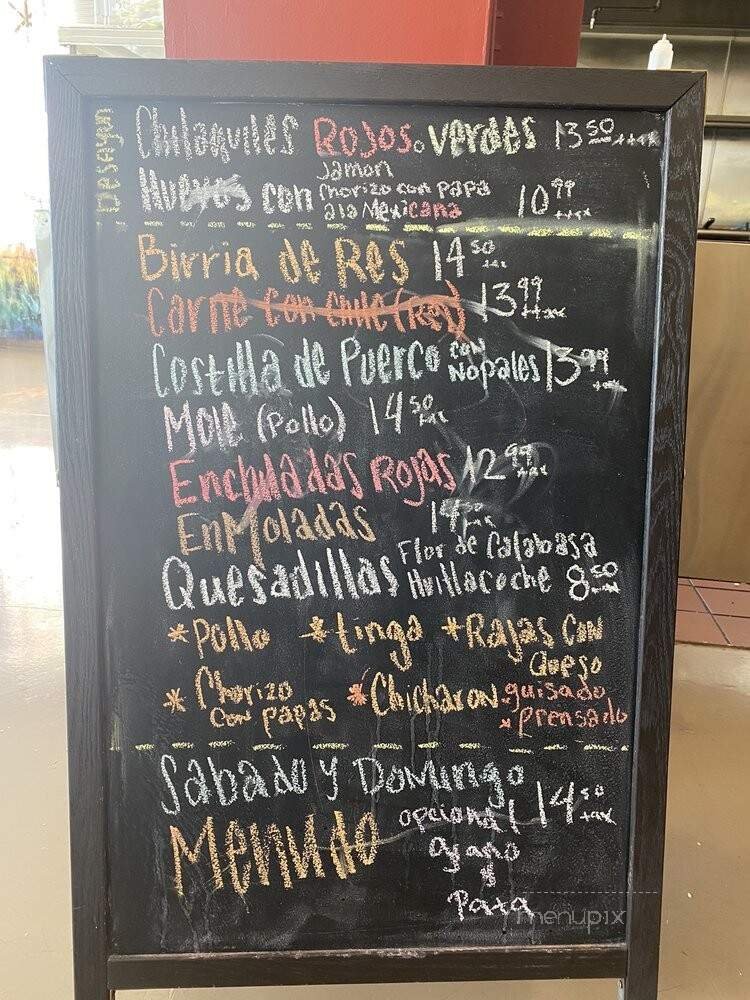 Desayun
Chilaquiles Rojos o verdes 13 50 +tax
Huevos con Jamon
Chorizo con papa
a la Mexicana 10 99 +tax
Birria de Res 14 50
Carne con chile (Res) 13 99 +tax
Costilla de Puerco con Nopales 13 99
Mole (Pollo) 14 50
Enchiladas Rojas 12 99
EnMoladas 14 50
Quesadillas Flor de Calabasa
Huitlacoche 8 50
*Pollo *tinga *Rajas Con Queso
*Chorizo con papas *Chicharon ·guisado
·prensado
Sabado y Domingo
Menudo 14 50 +tax
opcional
Pata
menupix